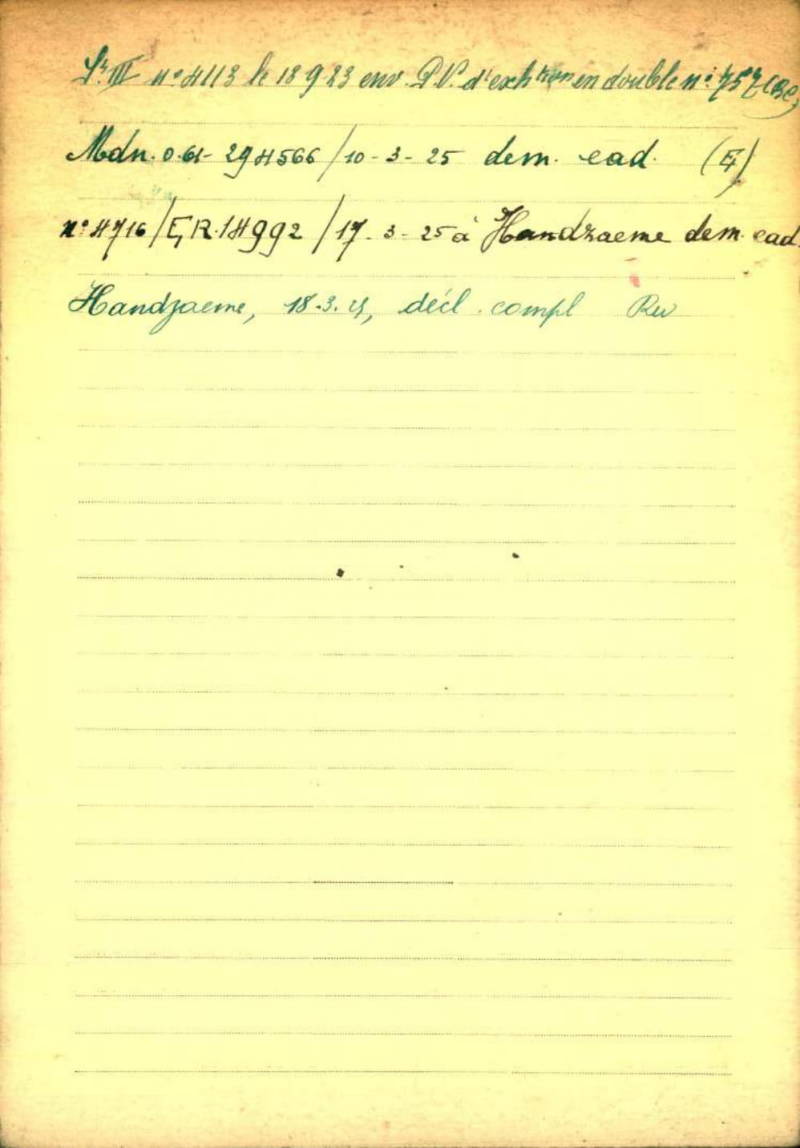 Sr III n° 4113 le 18 9 23 env. P.V. d'exh tion en double n° 757 (BC)
Mdn. 0.61- 294566 / 10 - 3 - 25 dem. ead.
n° 4716 / G,R.14992 / 17 - 3 - 25 à Handzaeme dem. ead.
Handzaeme, 18.3. décl. compl